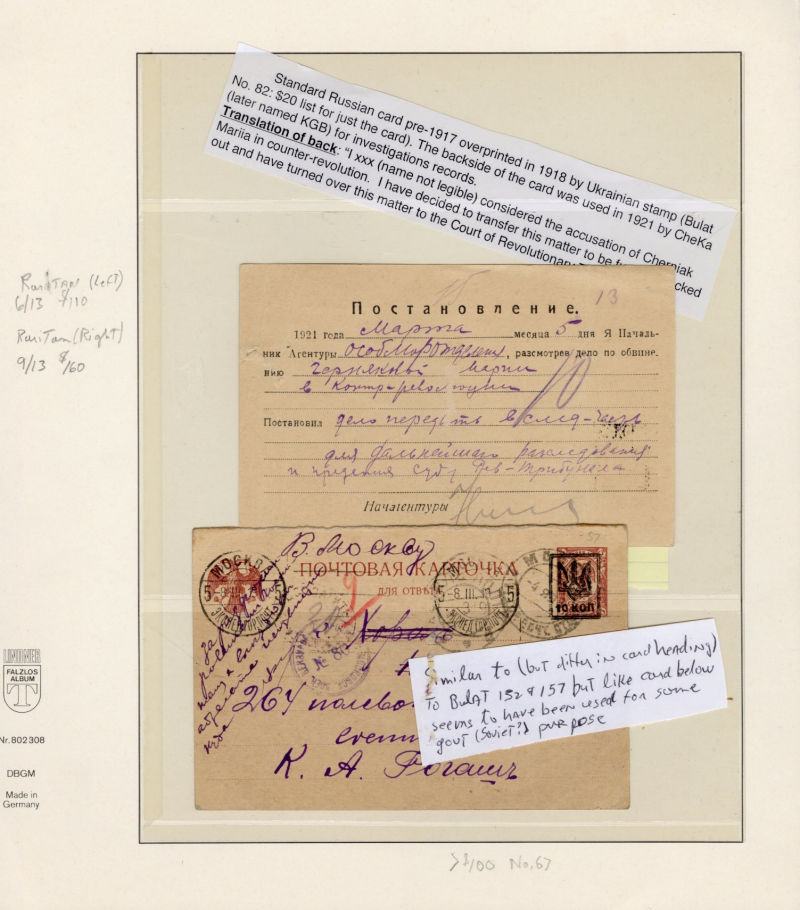 Standard Russian card pre-1917 overprinted in 1918 by Ukrainian stamp (Bulat
No. 82: $20 list for just the card). The backside of the card was used in 1921 by CheKa
(later named KGB) for investigations records.
Translation of back: "I xxx (name not legible) considered the accusation of Cherniak
Mariia in counter-revolution. I have decided to transfer this matter to be
out and have turned over this matter to the Court of Revolutionary
RariTan (Left)
6/13 $110
RariTan (Right)
9/13 $60
13
Постановление.
1921 года Марта месяца 5 дня Я Началь-
ник Агентуры, рассмотрев дело по обвине-
нию Черняковой Марии
в контр-революции
Постановил дело передать в след-часть
для дальнейшего расследования
и предания суду Рев-Трибунала
Начагентуры
57
В Москву
ПОЧТОВАЯ КАРТОЧКА
ДЛЯ ОТВѢТА
МОСКВА
5 5
МОСКВА
5 5
-8.III.
10 КОП
№ 8
264 полевой
К. А. Рогашъ
Similar to (but differ in card heading)
To BULAT 152 & 157 but like card below
seems to have been used for some
gout (Soviet?) purpose
LINDNER
FALZLOS
ALBUM
T
Nr. 802308
DBGM
Made in
Germany
>$100 No. 67